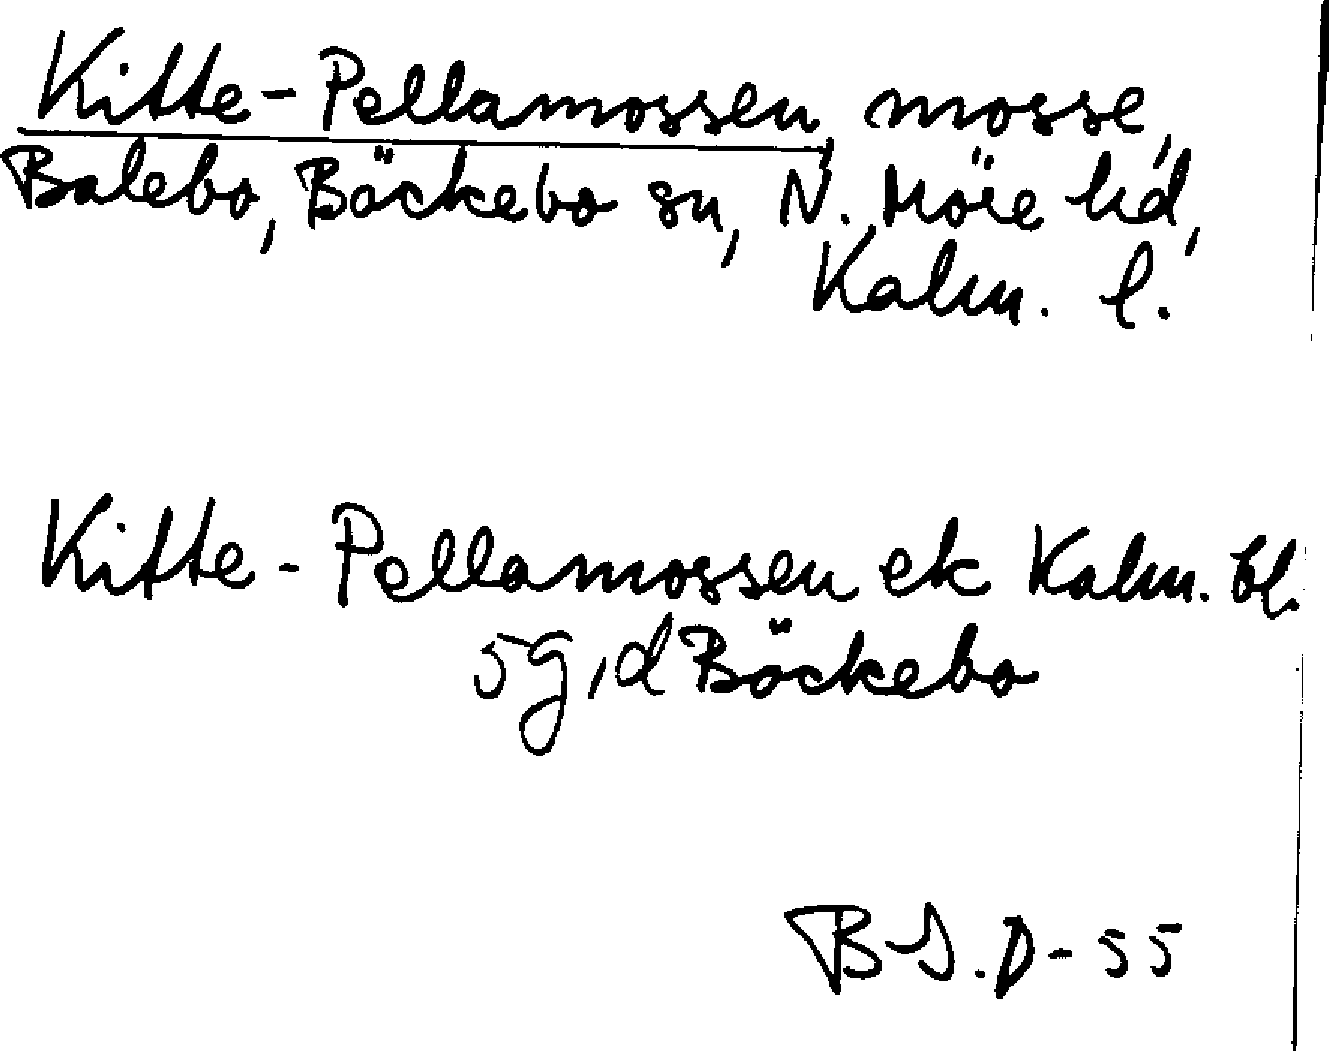 Kitte-Pellamossen, mosse,
Balebo, Bäckebo sn, N. Möre hd,
Kalm. l.
Kitte-Pellamossen ek Kalm. bl.
5g, d Bäckebo
D-55